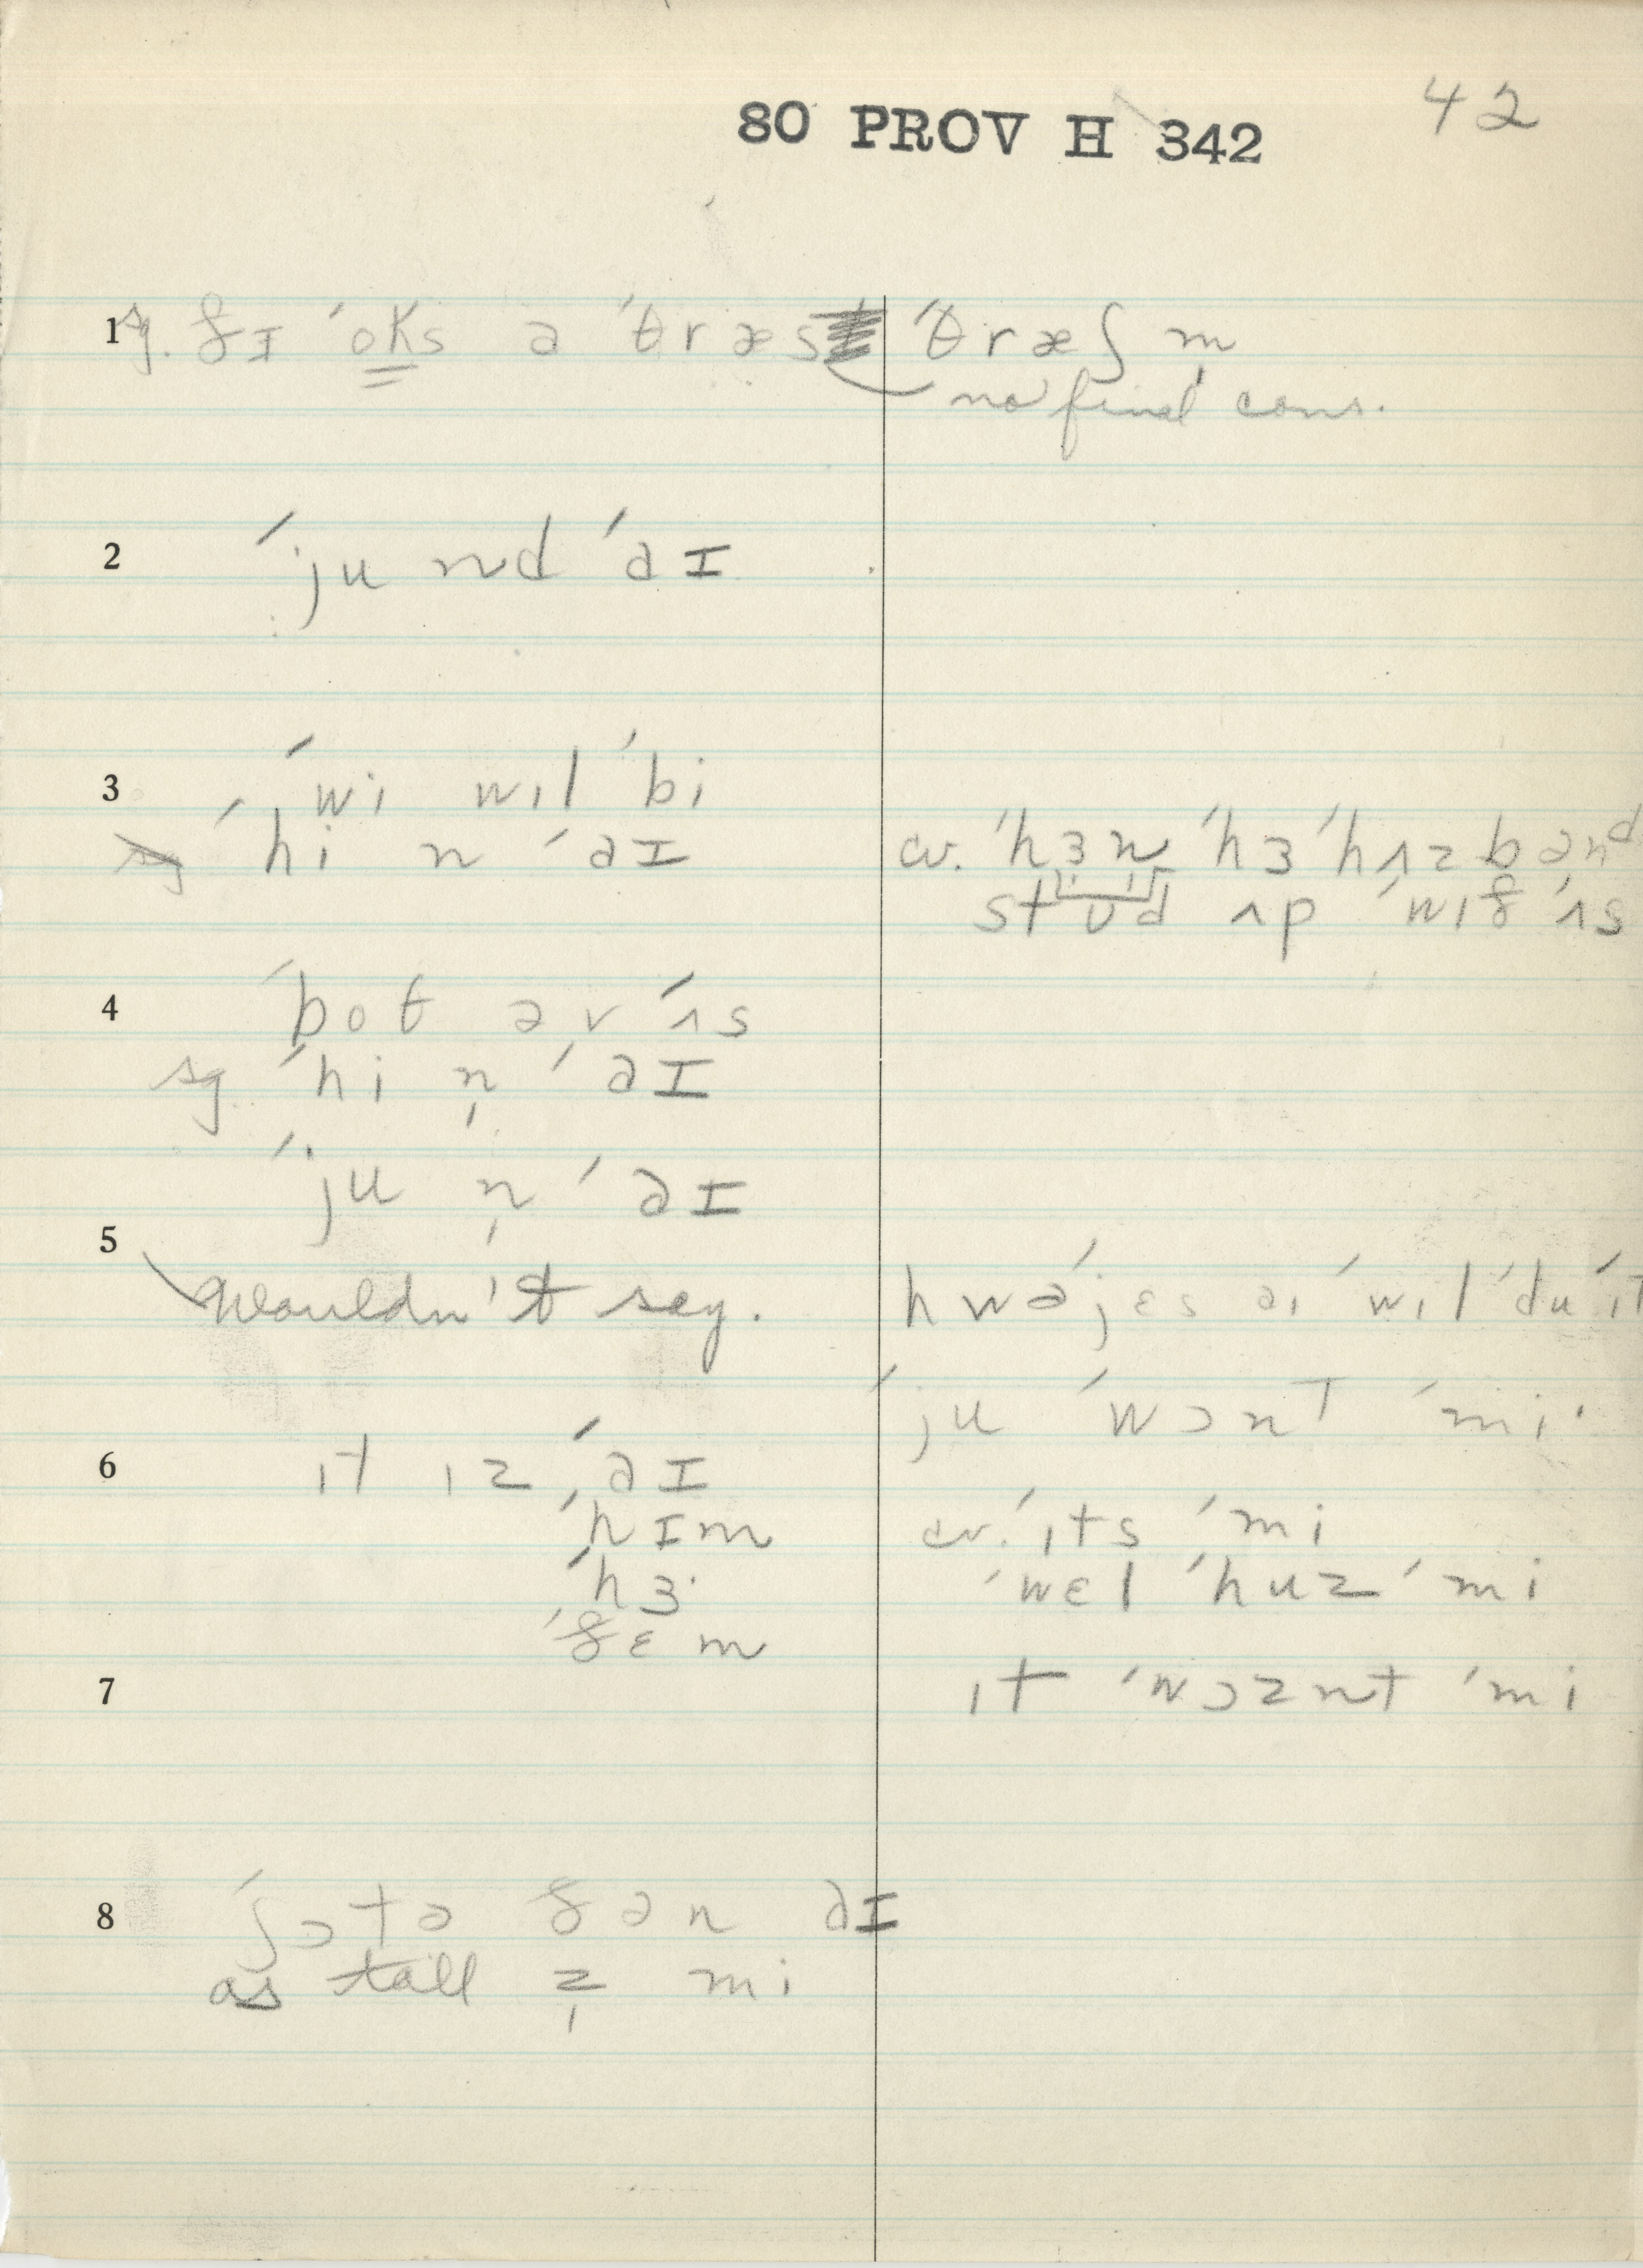 80 PROV H 342 42
1 sg. ðɪ ˈoks ə ˈθræs ˈθræʃ m̩
no final cons.
2 ˈju nd ˈaɪ
3 ˈwi wɪl ˈbi
ˈhi n ˈaɪ cv. ˈhɜ n ˈhɜ ˈhʌzbənd
stʊd ʌp ˈwɪð ˈʌs
4 ˈboθ əv ˈʌs
sg ˈhi n̩ ˈaɪ
ˈju n̩ ˈaɪ
5
wouldn't say. hwəˈjɛs aɪ ˈwɪl ˈdu ˈɪt
ˈju ˈwɔnt ˈmi·
6 ɪt ɪz ˈaɪ
ˈhɪm cv. ˈɪts ˈmi
ˈhɜ· ˈwɛl ˈhuz ˈmi
ˈðɛm
7 ɪt ˈwɔznt ˈmi
8 ˈʃɔtə ðən aɪ
as tall z̩ mi